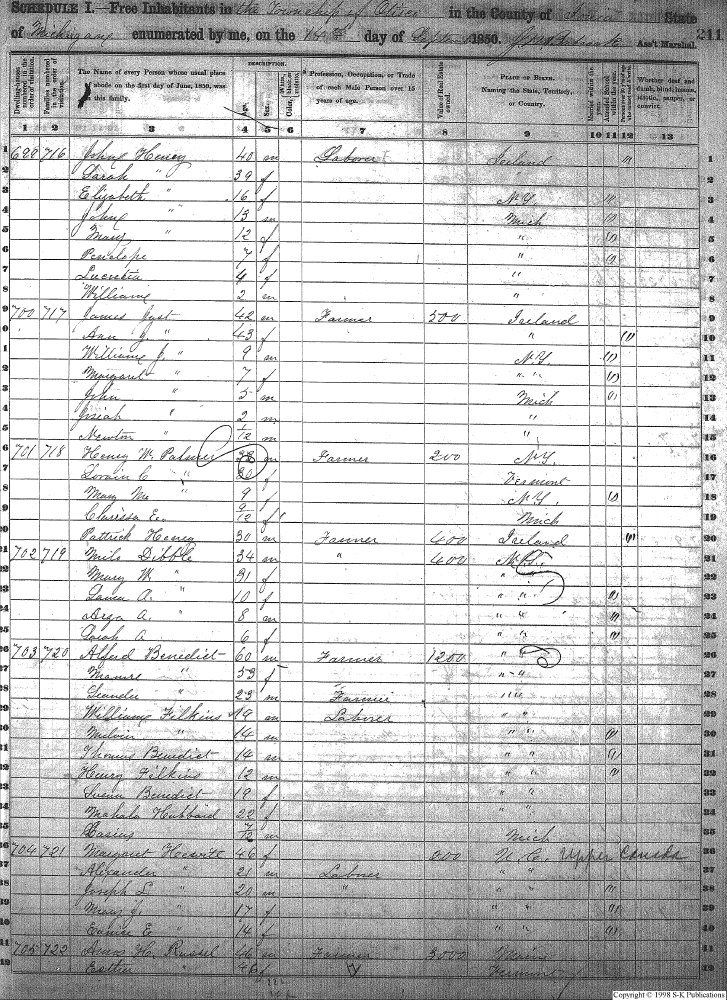 SCHEDULE I.—Free Inhabitants in the Township of Otisco in the County of Ionia State
of Michigan enumerated by me, on the day of Sept 1850. Ass't Marshal. 211
Dwelling-houses numbered in the order of visitation.
Families numbered in the order of visitation.
The Name of every Person whose usual place of abode on the first day of June, 1850, was in this family.
DESCRIPTION.
Age.
Sex.
Color,
Profession, Occupation, or Trade of each Male Person over 15 years of age.
Value of Real Estate owned.
PLACE OF BIRTH. Naming the State, Territory, or Country.
Married within the year.
Attended School within the year.
Whether deaf and dumb, blind, insane, idiotic, pauper, or convict.
1 2 3 4 5 6 7 8 9 10 11 12 13
1 699 716 John Henry 40 m Laborer Ireland 1
2 Sarah " 39 f 2
3 Elizabeth " 16 f N.Y. 3
4 John " 13 m Mich 4
5 Mary " 12 f " 5
6 Penelope 7 f " 6
7 Lucretia 4 f " 7
8 William 2 m " 8
9 700 717 James Jost 42 m Farmer 500 Ireland 9
Ann " 43 f " 10
William J. " 9 m N.Y. 11
Margaret " 7 f " " 12
John " 5 m Mich 13
Josiah " 2 m " 14
Newton " /12 m " 15
701 718 Henry W. Palmer 38 m Farmer 200 N.Y. 16
Lovain C " 30 f Vermont 17
Mary M " 9 f N.Y. 18
Clarissa E. 9/12 f Mich 19
Patrick Henry 30 m Farmer 400 Ireland 20
702 719 Milo Dibble 34 m " 400 N.Y. 21
Mary W. " 31 f " 22
Laura A. " 10 f " " 23
A. " 8 m " " 24
Sarah A 6 f " " 25
703 720 Alfred Benedict 60 m Farmer 1200 " " 26
" 53 f " " 27
Leander " 23 m Farmer " " 28
William Filkins 19 m Laborer " " 29
Melvin " 14 m " " 30
Thomas Benedict 14 m " " 31
Henry Filkins 12 m " " 32
Benedict 19 f " " 33
Mahala Hubbard 22 f " " 34
/12 m Mich 35
704 721 Margaret Hewitt 46 f 300 U.C. Upper Canada 36
Alexander " 21 m Laborer " " 37
Joseph L " 20 m " " " 38
Mary J. " 17 f " " 39
Eunice E " 14 f " " 40
705 722 H. Russel 46 m Farmer 3000 41
Esther " f Vermont 42
Copyright © 1998 S-K Publications